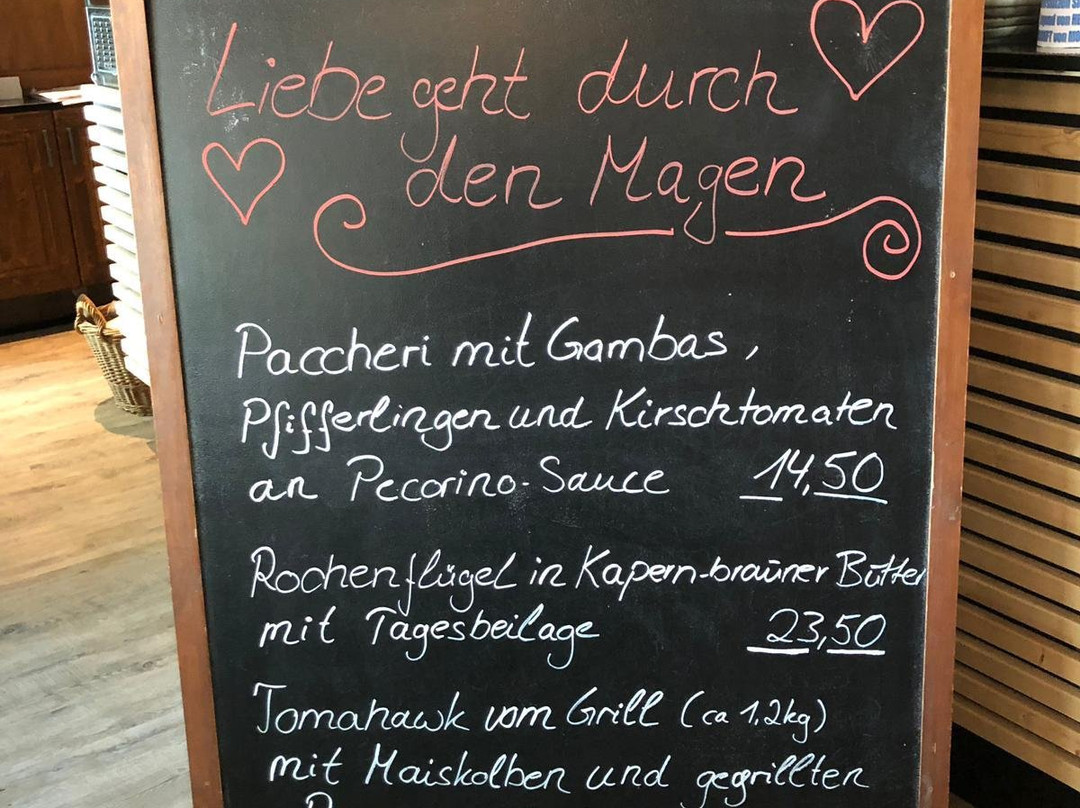 Liebe geht durch
den Magen
Paccheri mit Gambas,
Pfifferlingen und Kirschtomaten
an Pecorino-Sauce 14,50
Rochenflügel in Kapern-brauner Butter
mit Tagesbeilage 23,50
Tomahawk vom Grill (ca 1,2kg)
mit Maiskolben und gegrillten